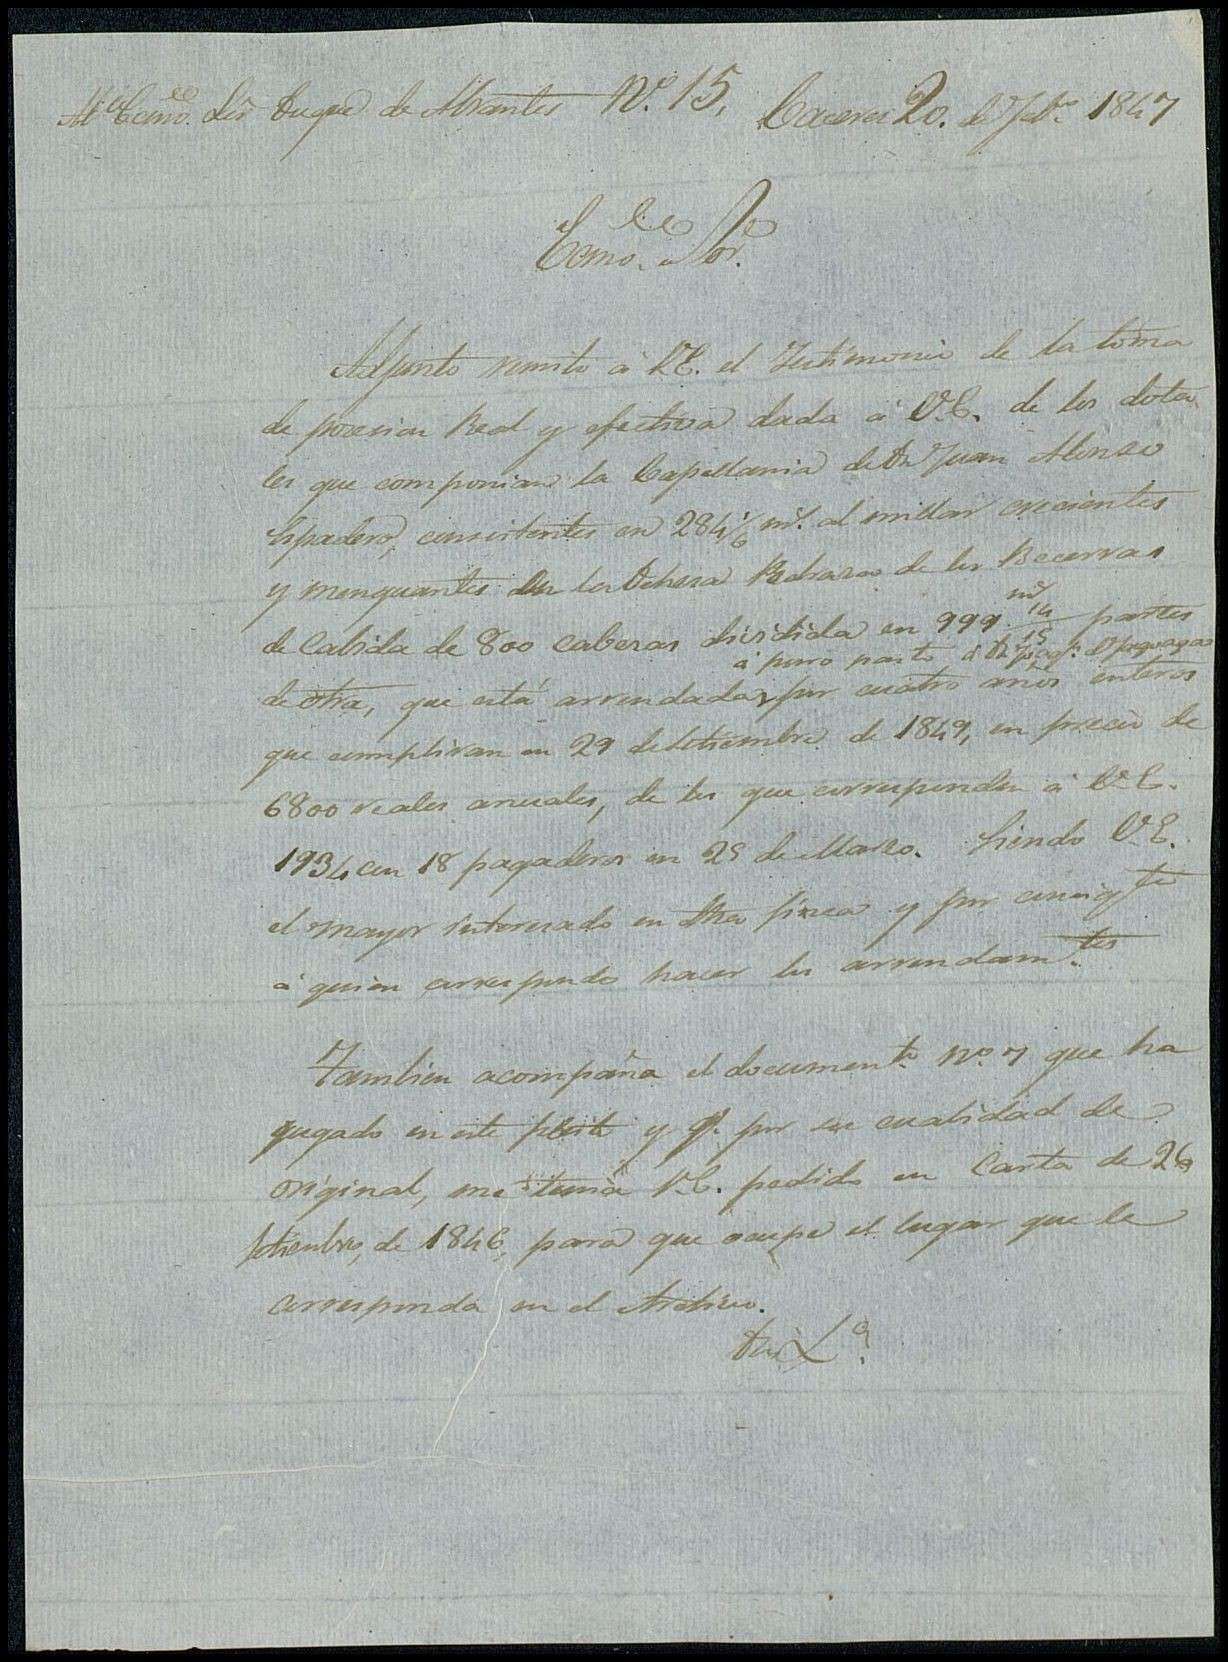 Al Excmo. Sor Duque de Abrantes Nº. 15. Caceres 20. de Febº. 1847
Excmo. Sor.
Adjunto remito à V.E. el Testimonio de la toma
de posesion Real y efectiva dada à V.E. de los dota
les que componian la Capellania de Dn Juan Alonso
Espadero, consistentes en 284 1/6 mrs. al millar crecientes
y menguantes en la Dehesa Pedraza de los Becerras
de cabida de 800 cabezas dividida en 999 mrs 14/15 partes
à puro pasto à Dn
de otra, que está arrendada por cuatro años enteros
que cumpliran en 29 de Setiembre de 1849, en precio de
6800 reales anuales, de los que corresponden à V.E.
1934 con 18 pagaderos en 25 de Marzo. Siendo V.E.
el mayor interesado en dha finca y por consigte
à quien corresponde hacer los arrendamtos.
Tambien acompaña el documento. nº. 7 que ha
jugado en este pleito y q. por su cualidad de
original, me tenia V.E. pedido en Carta de 26
Setiembre, de 1846, para que ocupe el lugar que le
corresponda en el Archivo.